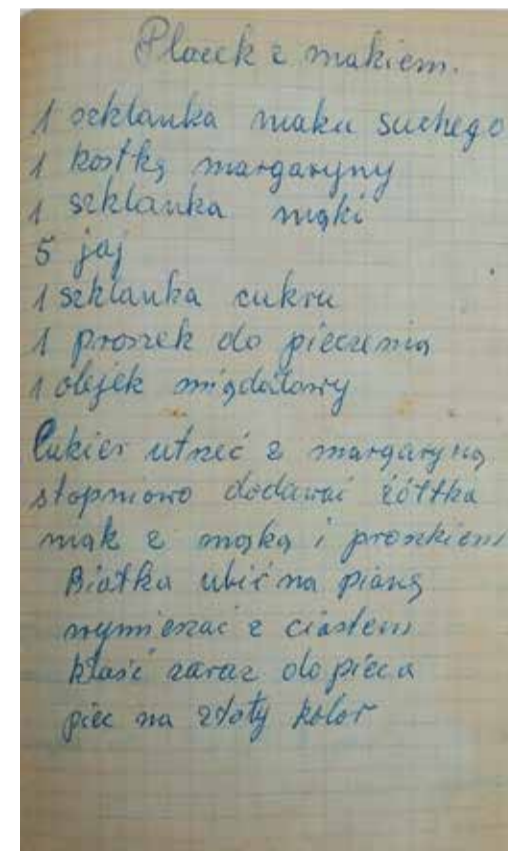 Placek z makiem.
1 szklanka maku suchego
1 kostkę margaryny
1 szklanka mąki
5 jaj
1 szklanka cukru
1 proszek do pieczenia
1 olejek migdałowy
Cukier utrzeć z margaryną
stopniowo dodawać żółtka
mak z mąką i proszkiem
Białka ubić na pianę
wymieszać z ciastem
kłaść zaraz do pieca
piec na złoty kolor